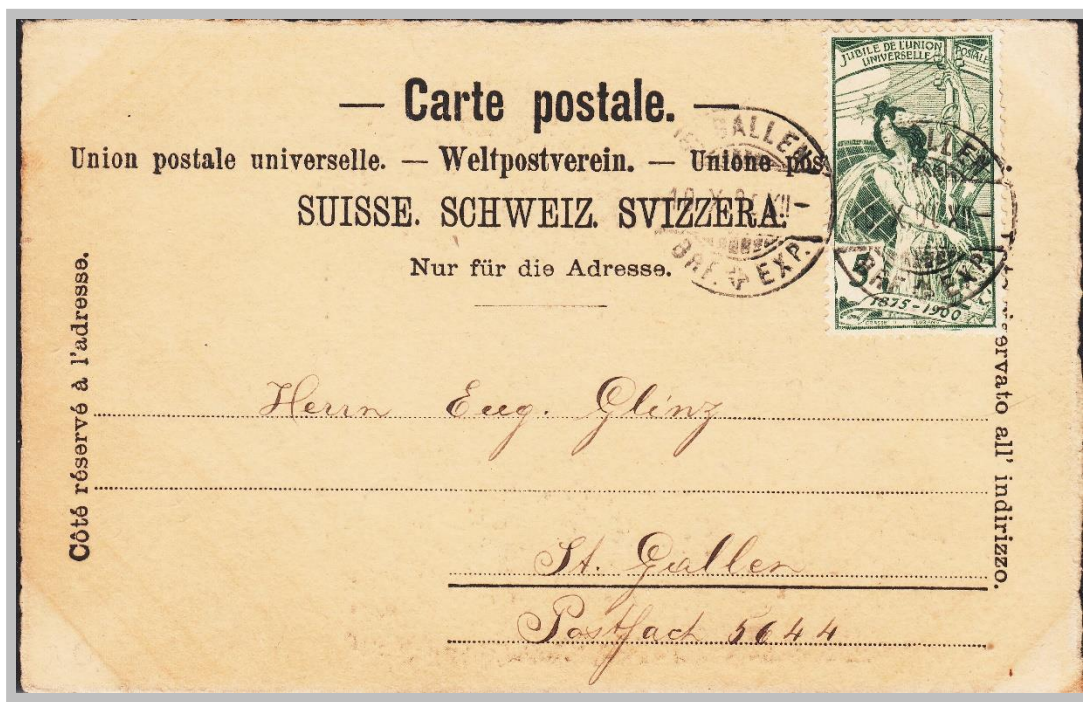 — Carte postale. —
Union postale universelle. — Weltpostverein. — Unione pos
SUISSE. SCHWEIZ. SVIZZERA.
Nur für die Adresse.
Côté réservé à l'adresse.
ervato all' indirizzo.
JUBILÉ DE L'UNION POSTALE
UNIVERSELLE
5
1875-1900
GALLEN
BRF. EXP.
LLEN
BRF. EXP.
Herrn Eug. Glinz
St. Gallen
Postfach 5644